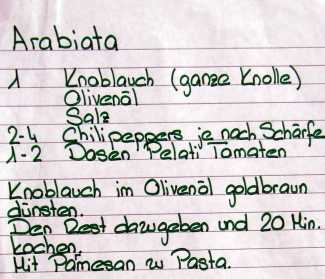 Arabiata
1 Knoblauch (ganze Knolle)
Olivenöl
Salz
2-4 Chilipeppers je nach Schärfe
1-2 Dosen Pelati Tomaten
Knoblauch im Olivenöl goldbraun
dünsten.
Den Rest dazugeben und 20 Min.
kochen.
Mit Parmesan zu Pasta.